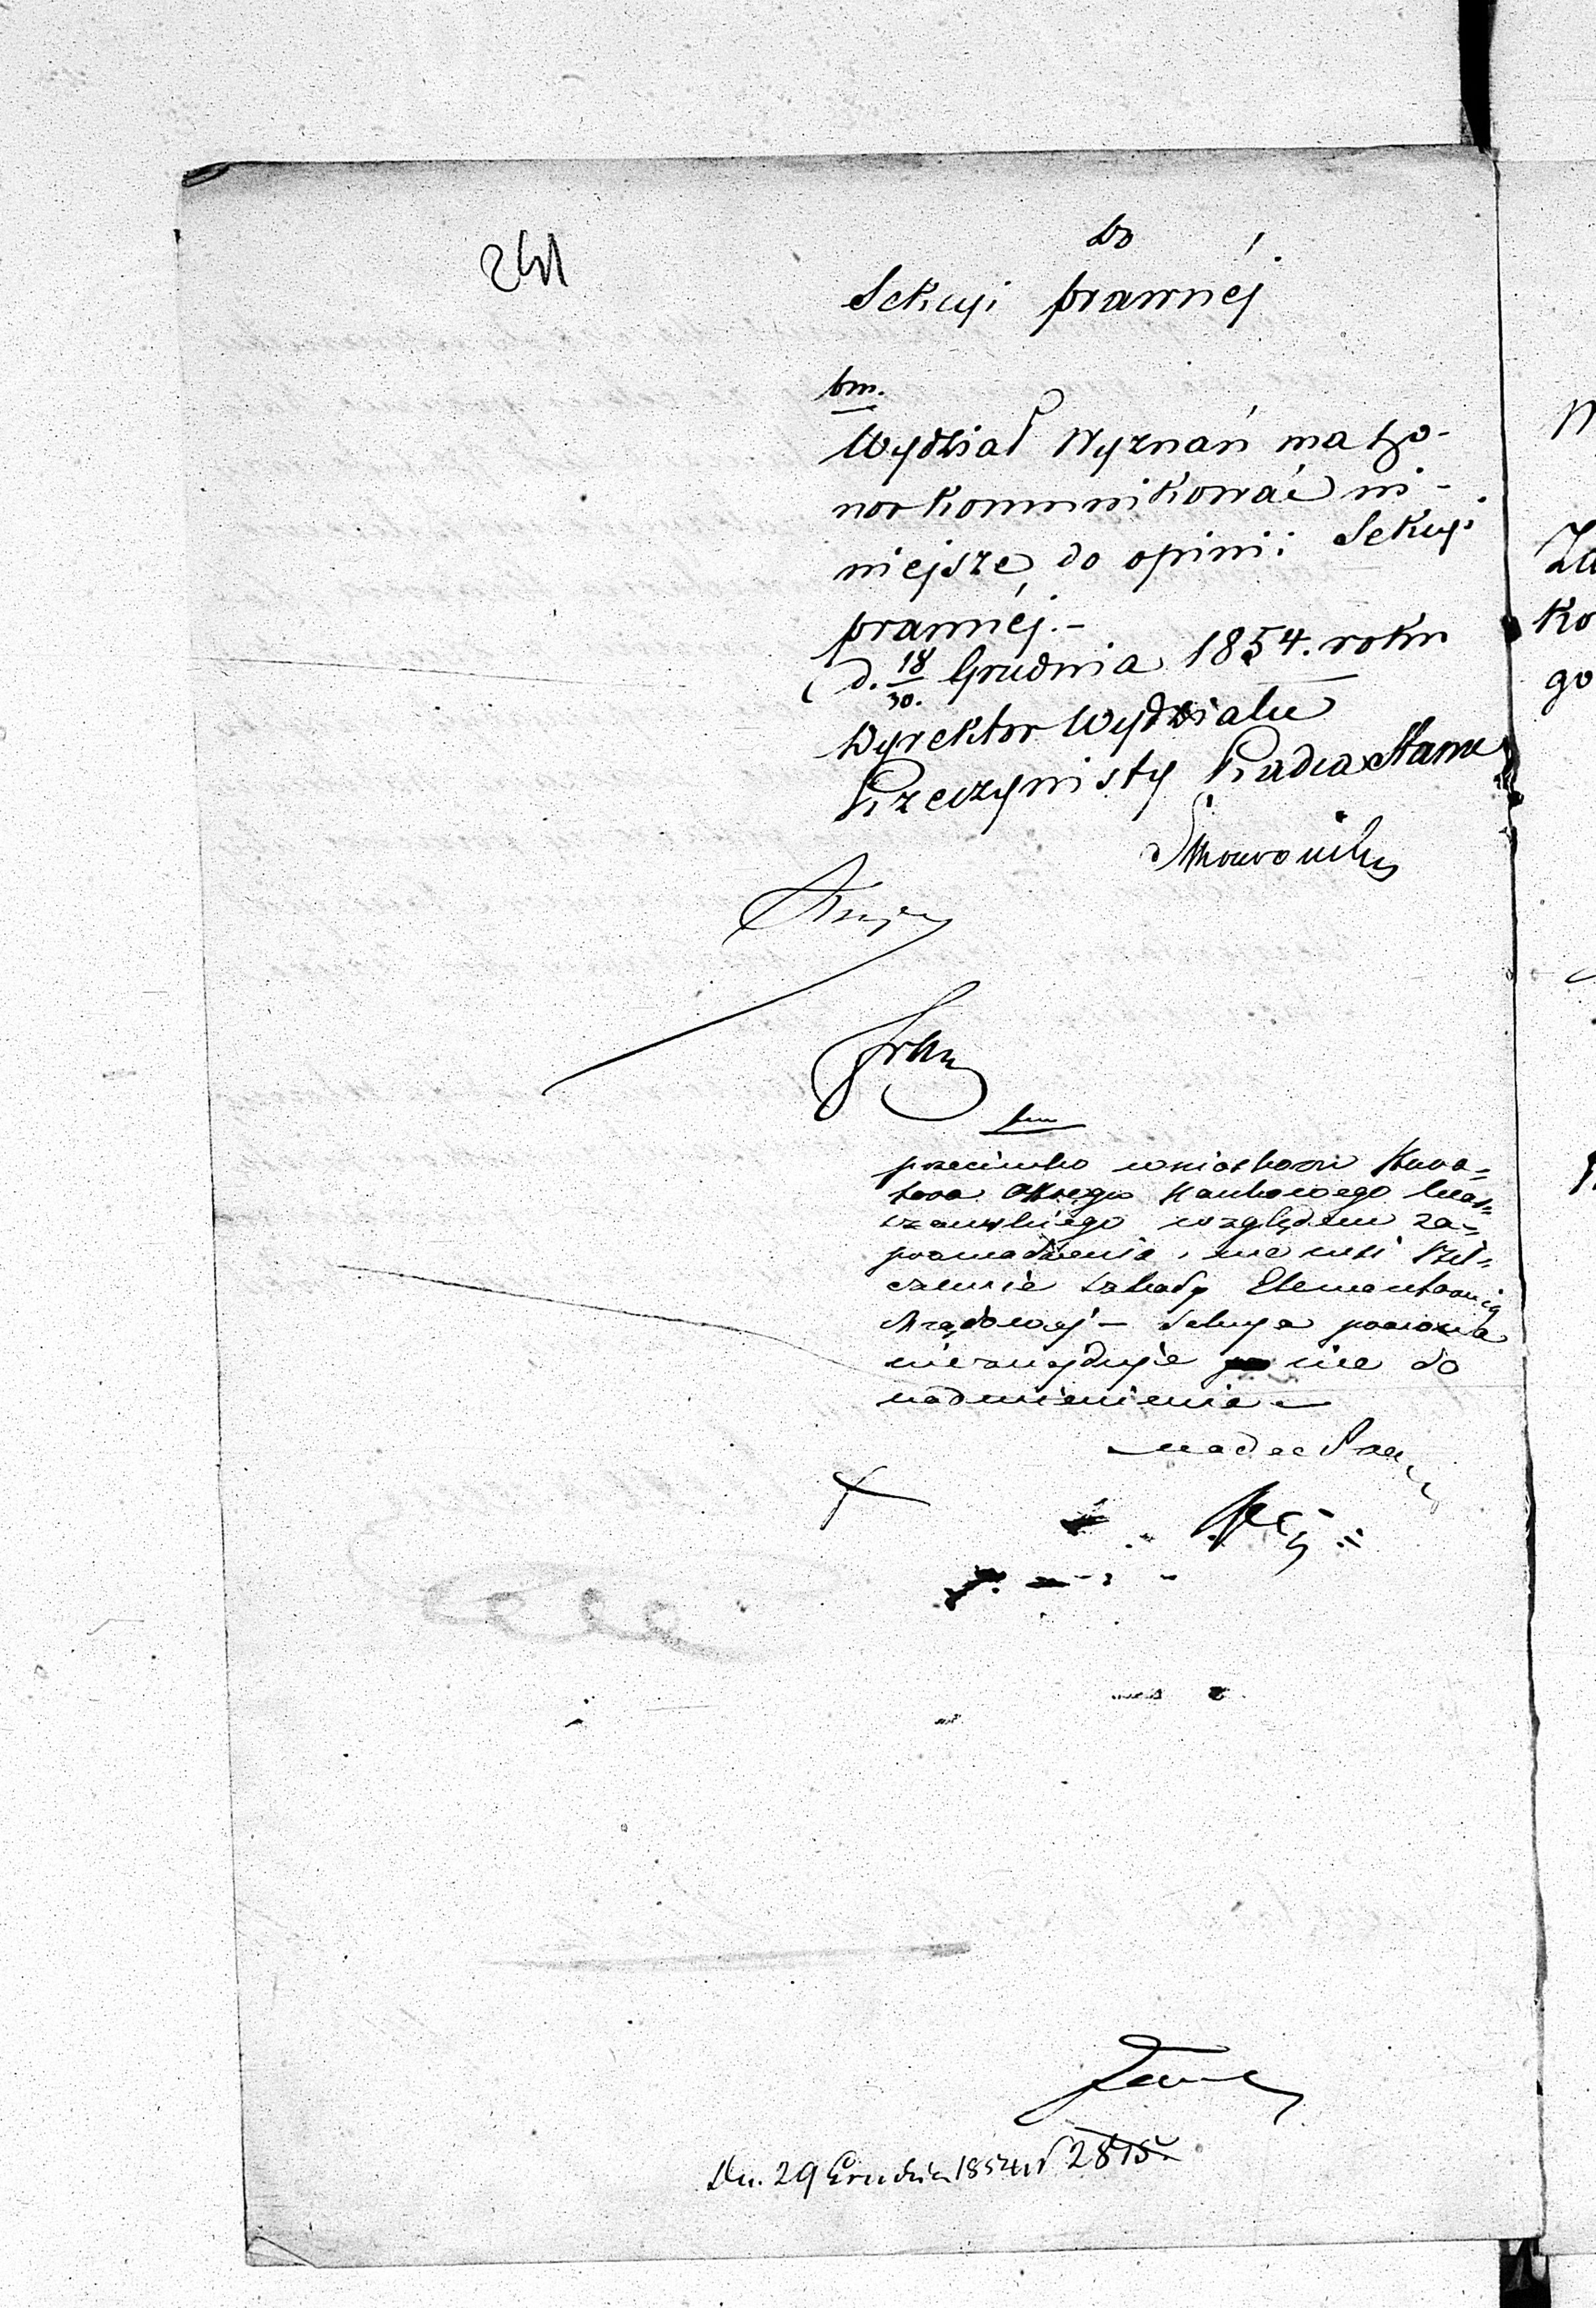 241
Do
Sekcyi prawnéj.
bm.
Wydział Wyznań ma ho-
nor kommunikować ni-
niejsze do opinii Sekcyi
prawnéj.-
d. 18/30. Grudnia 1854. roku
Dyrektor Wydziału
Rzeczywisty Radca Stanu
przeciwko wnioskowi Kura-
tora Okręgu Naukowego War-
szawskiego względem za-
prowadzenia, we wsi
Szkoły Elementarnej
Rządowej - Sekcya prawna
nieznajduje nic do
nadmienienia -
Radca
Dn. 29 Grudnia 1854 N 2815